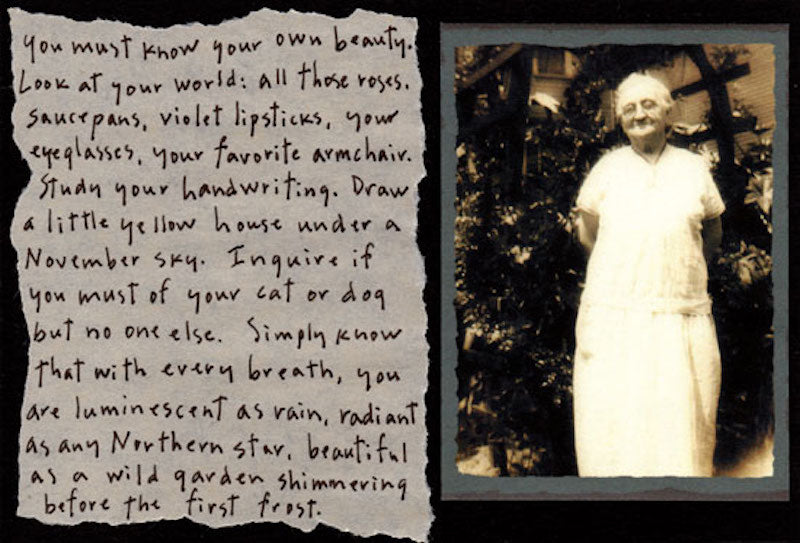 you must know your own beauty.
Look at your world: all those roses.
saucepans, violet lipsticks, your
eyeglasses, your favorite armchair.
Study your handwriting. Draw
a little yellow house under a
November sky. Inquire if
you must of your cat or dog
but no one else. Simply know
that with every breath, you
are luminescent as rain, radiant
as any Northern star, beautiful
as a wild garden shimmering
before the first frost.